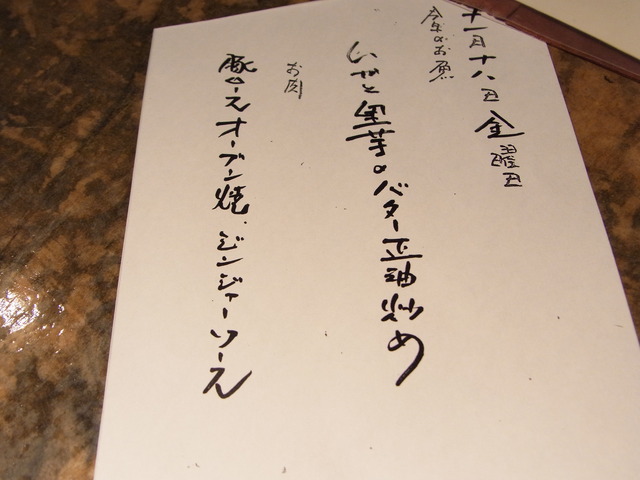 十一月十八日 金曜日
今日のお魚
いかと里芋のバター正油炒め
お肉
豚ロースオーブン焼、ジンジャーソース